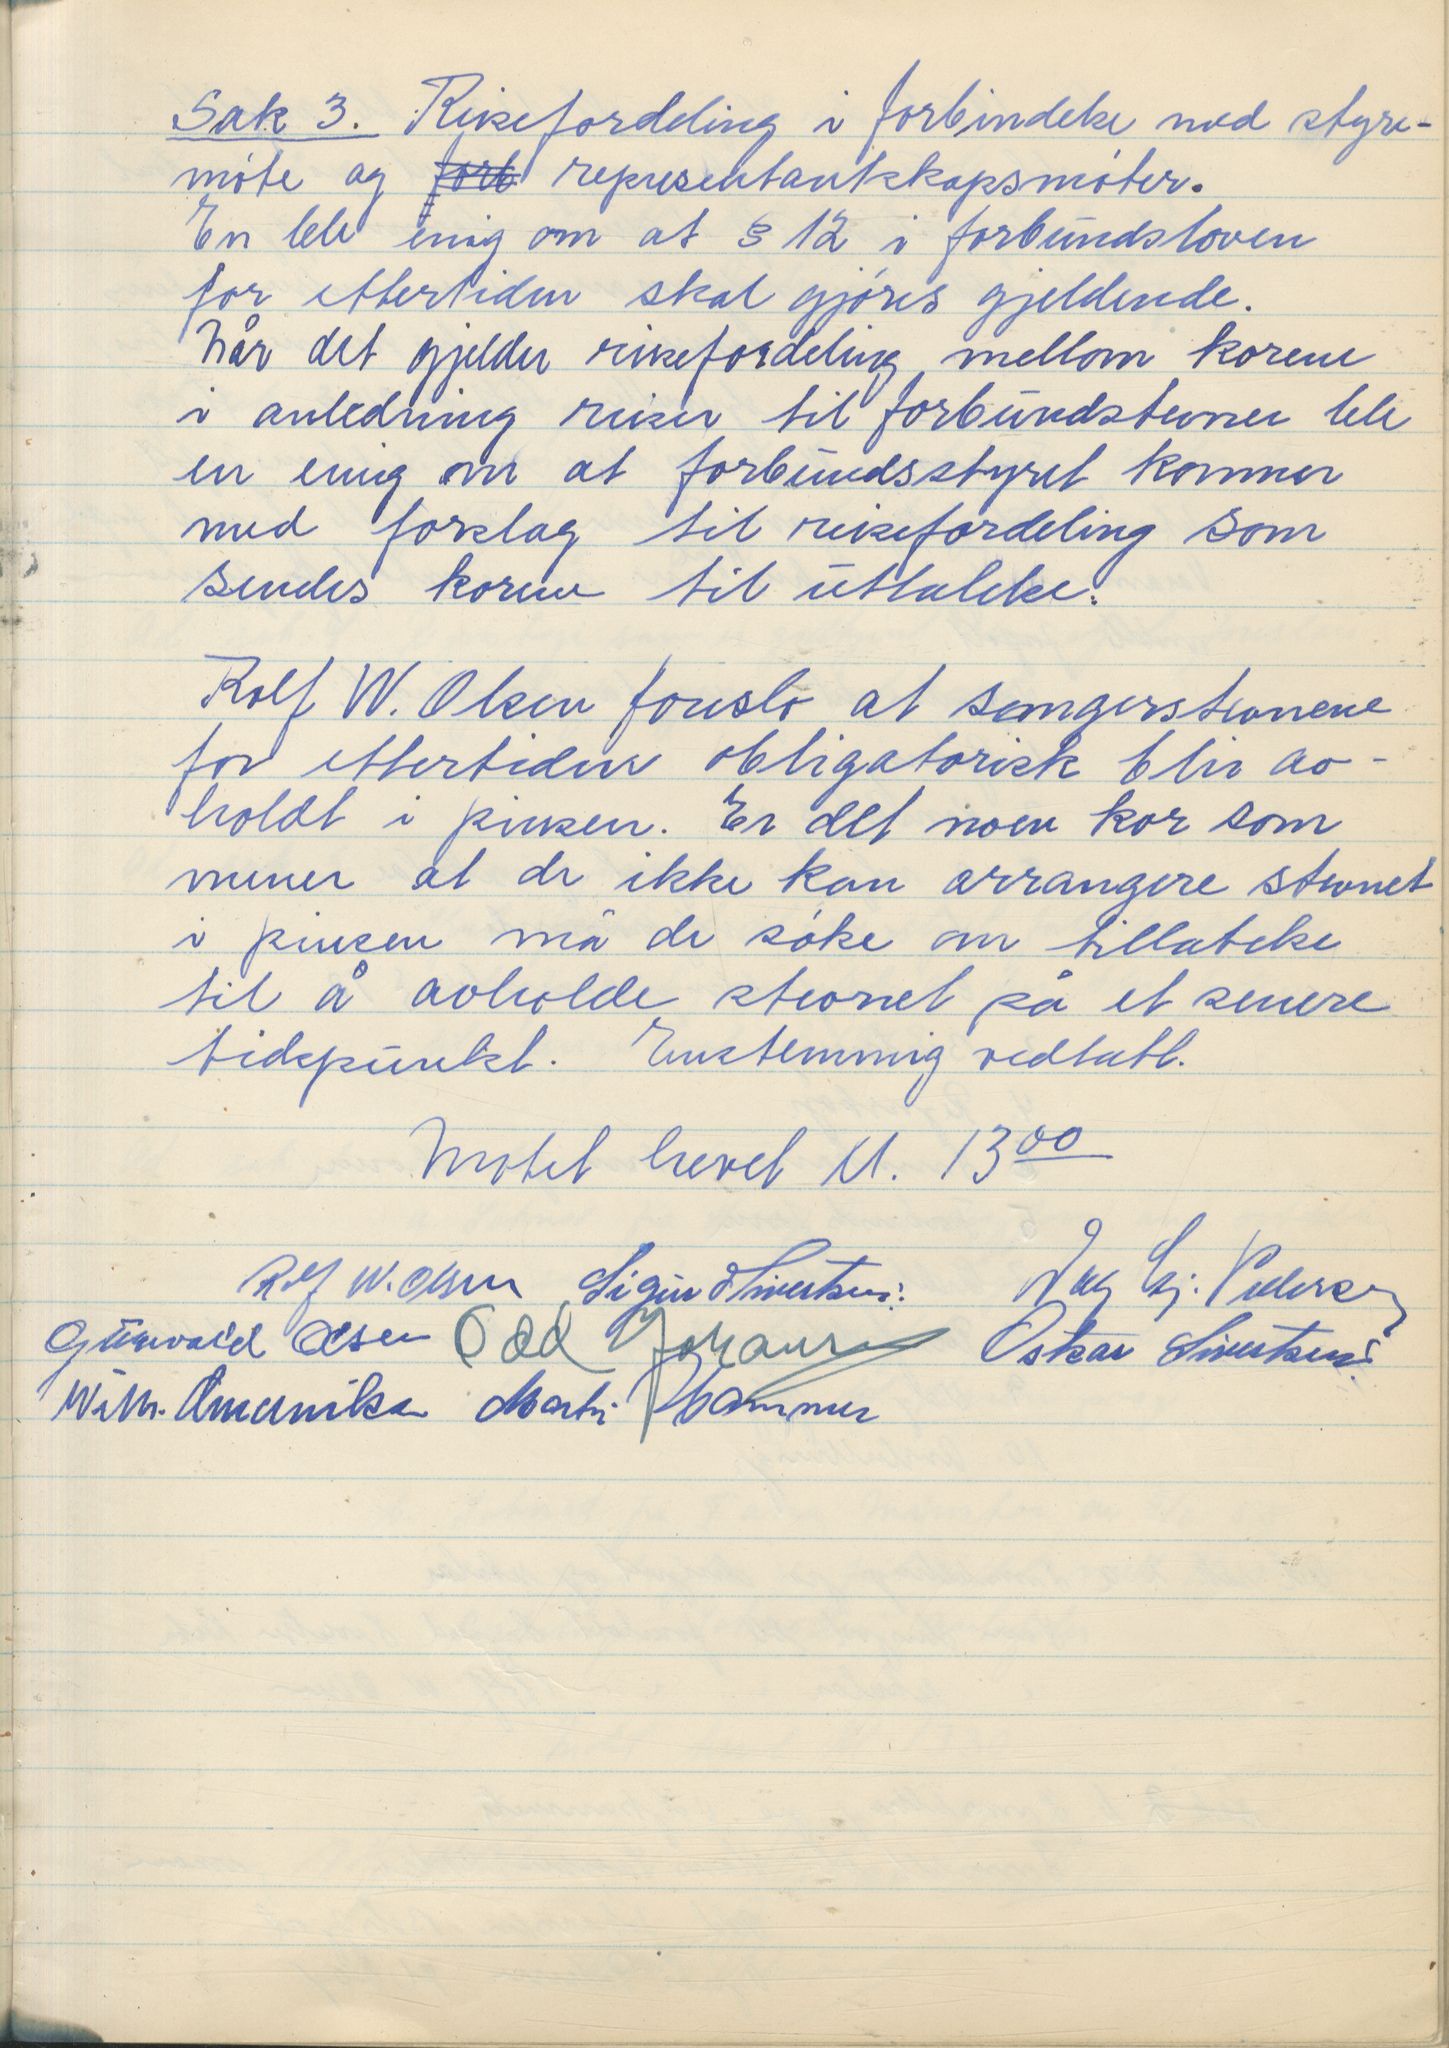 Sak 3. Reisefordeling i forbindelse med styre-
møte og forb representantskapsmøter.
En ble enig om at § 12 i forbundsloven
for ettertiden skal gjøres gjeldende.
Når det gjelder reisefordeling mellom korene
i anledning reiser til forbundstevner ble
en enig om at forbundsstyret kommer
med forslag til reisefordeling som
sendes korene til uttalelse.
Rolf W. Olsen foreslo at sangerstevnene
for ettertiden obligatorisk blir av-
holdt i pinsen. Er det noen kor som
mener at de ikke kan arrangere stevnet
i pinsen må de søke om tillatelse
til å avholde stevnet på et senere
tidspunkt. Enstemmig vedtatt.
Møtet hevet kl. 13⁰⁰
Rolf W. Olsen Sigurd Sivertsen. Dag Hj. Pedersen
Gunvald Olsen Odd Johansen Oskar Sivertsen.
Wilh. Martin Hammer